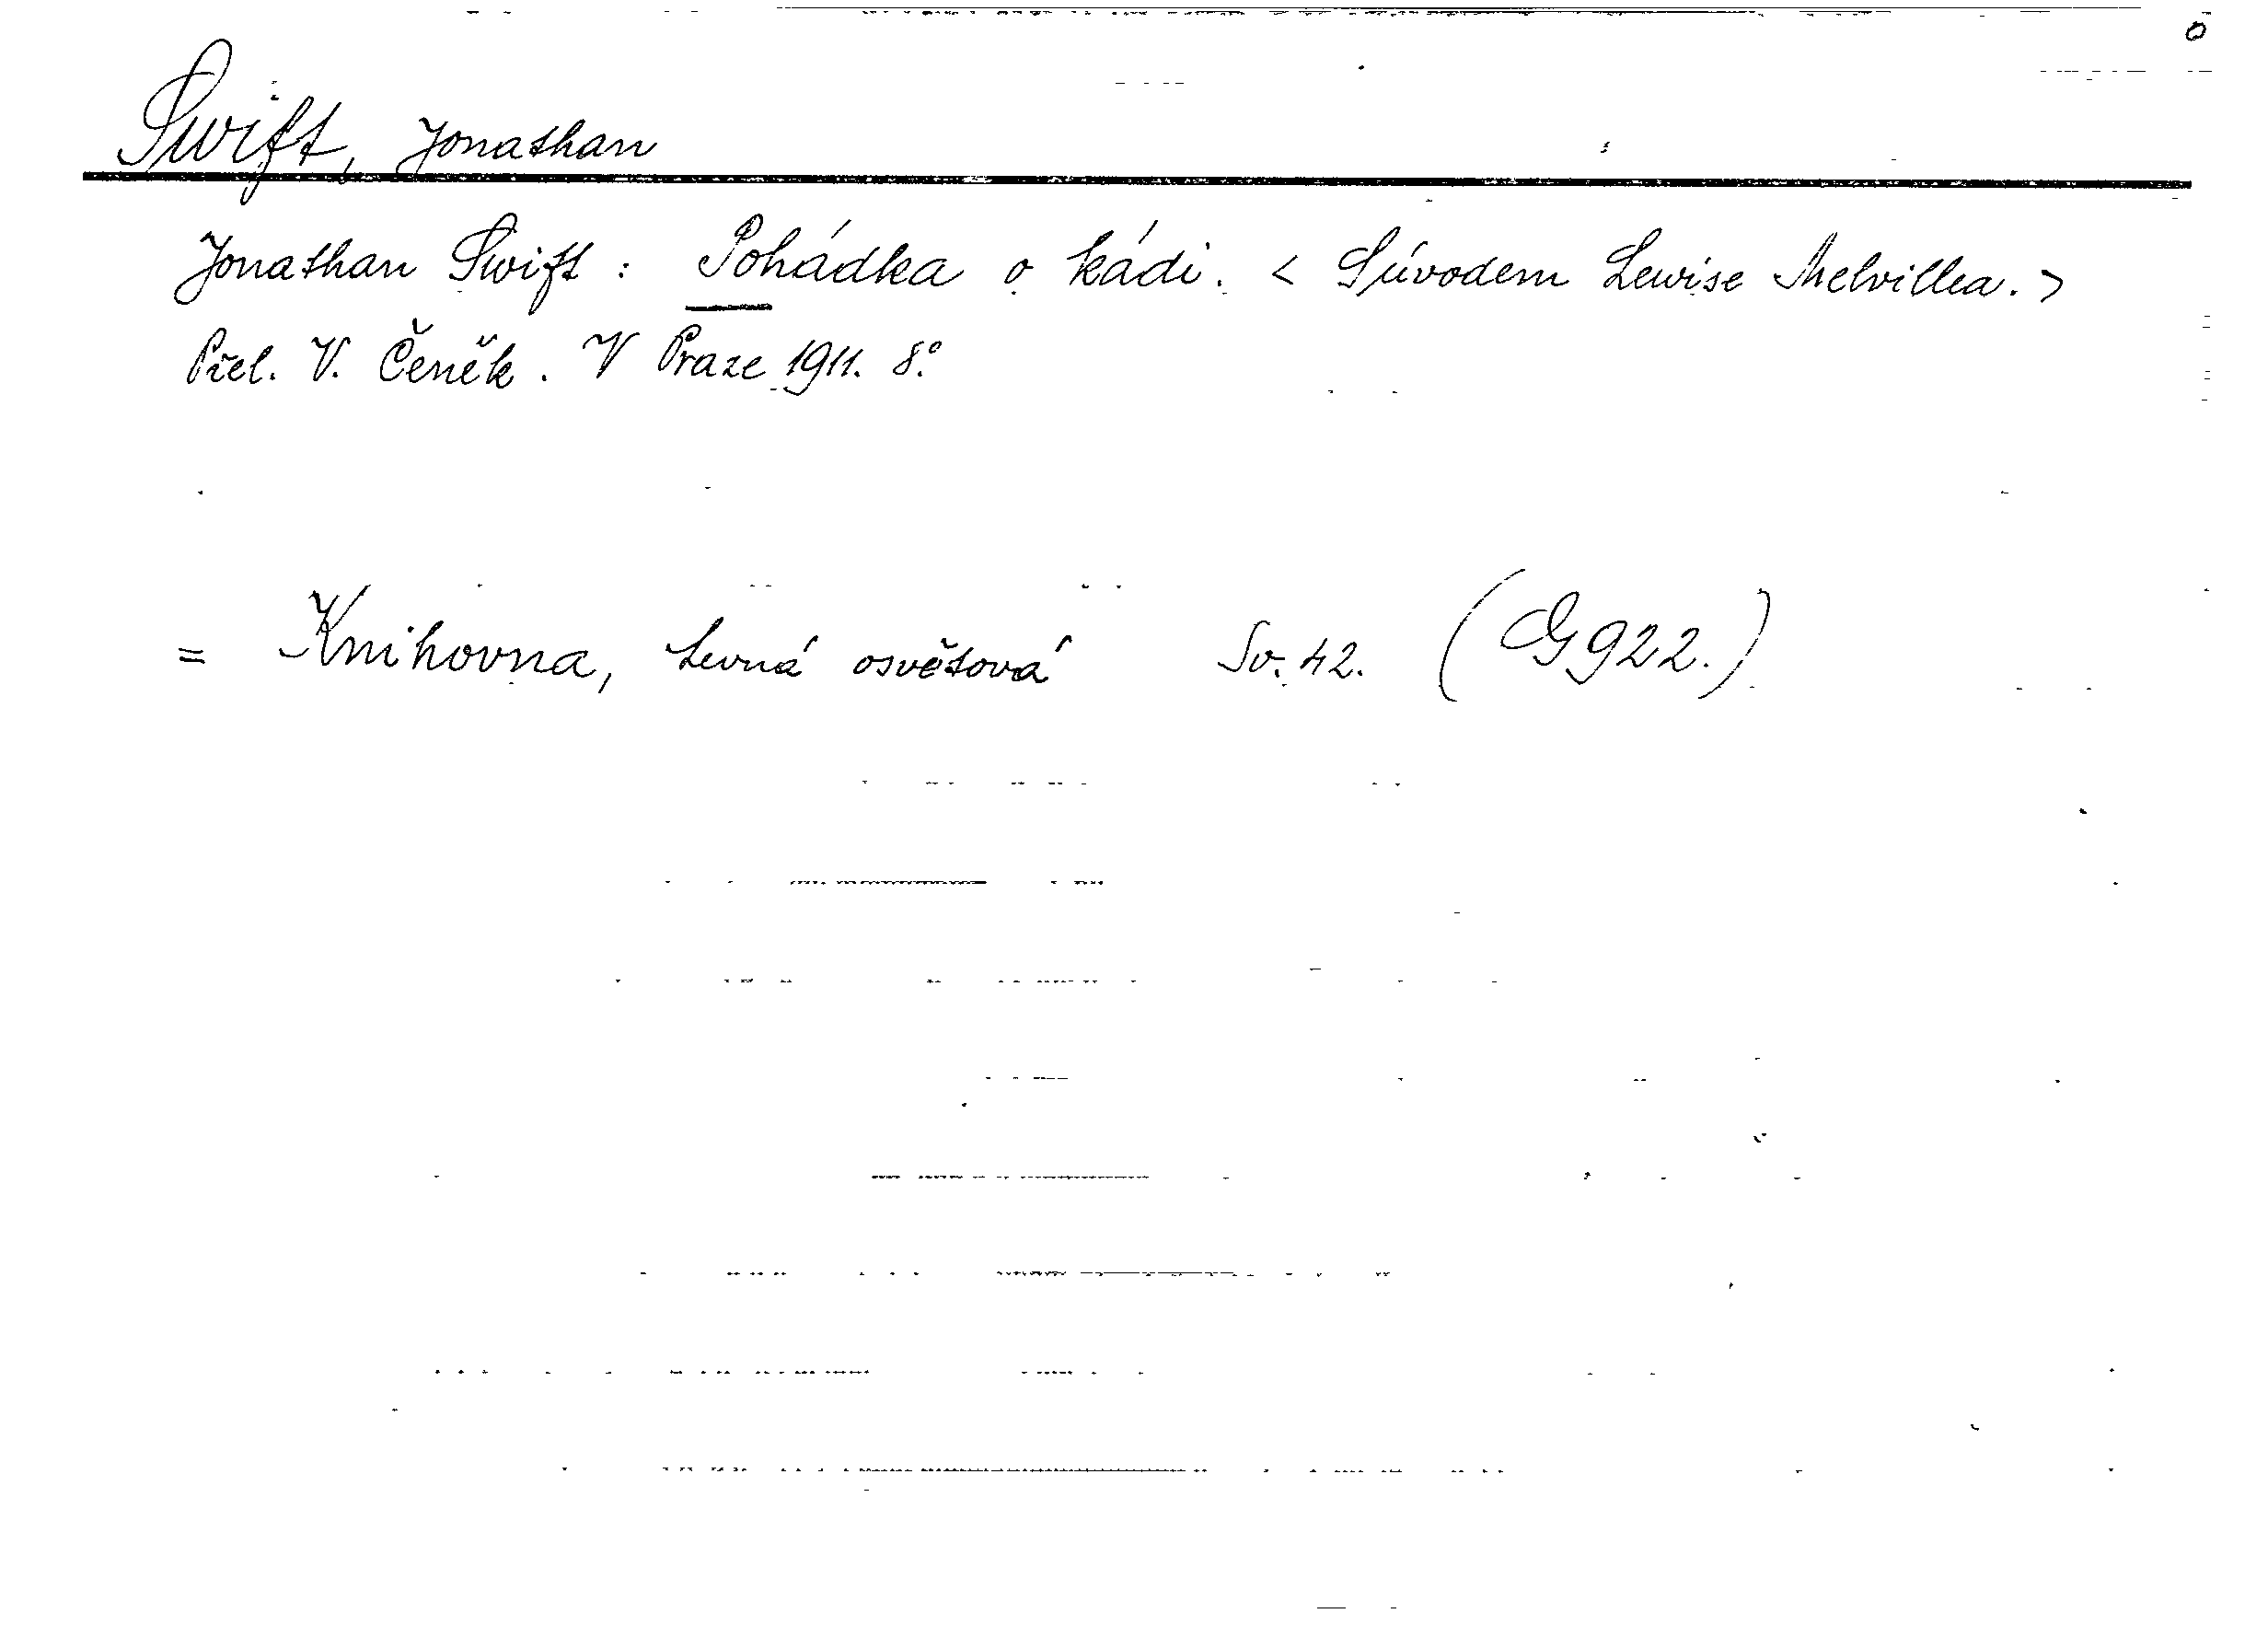 Swift, Jonathan
Jonathan Swift : Pohádka o kádi. < S úvodem Lewise Melvillea. >
Přel. V. Čeněk. V Praze 1911. 8.°
= Knihovna, Levná osvětová Sv. 42. (G 922.)